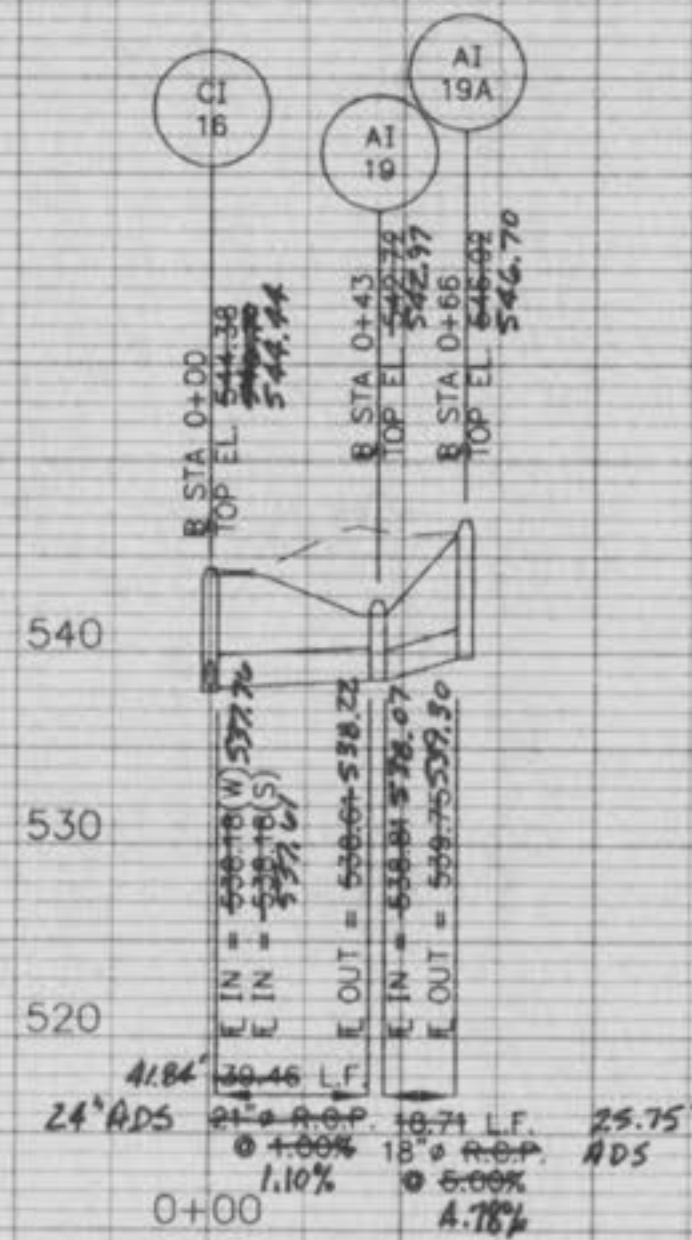 CI
16
AI
19
AI
19A
B STA 0+00
TOP EL. 544.38
544.44
B STA 0+43
TOP EL. 542.79
542.97
B STA 0+66
TOP EL. 546.02
546.70
540
530
520
FL IN = 538.18(W) 537.76
FL IN = 538.18(S)
537.61
FL OUT = 538.61 538.22
FL IN = 538.81 538.07
FL OUT = 539.75 539.30
41.84' 39.46 L.F.
24" ADS 21"ø R.C.P. 18.71 L.F. 25.75'
@ 1.00% 18"ø R.C.P. ADS
1.10% @ 5.00%
0+00 4.78%